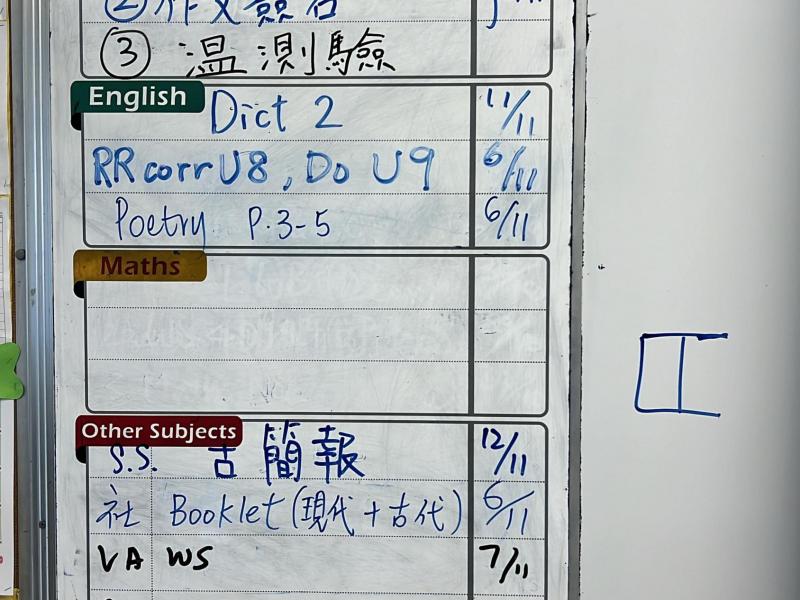 ② 作文簽名
③ 溫測驗
English
Dict 2 11/11
RR corr U8, Do U9 6/11
Poetry P.3-5 6/11
Maths
Other Subjects
S.S. 古簡報 12/11
社 Booklet (現代 + 古代) 6/11
VA WS 7/11